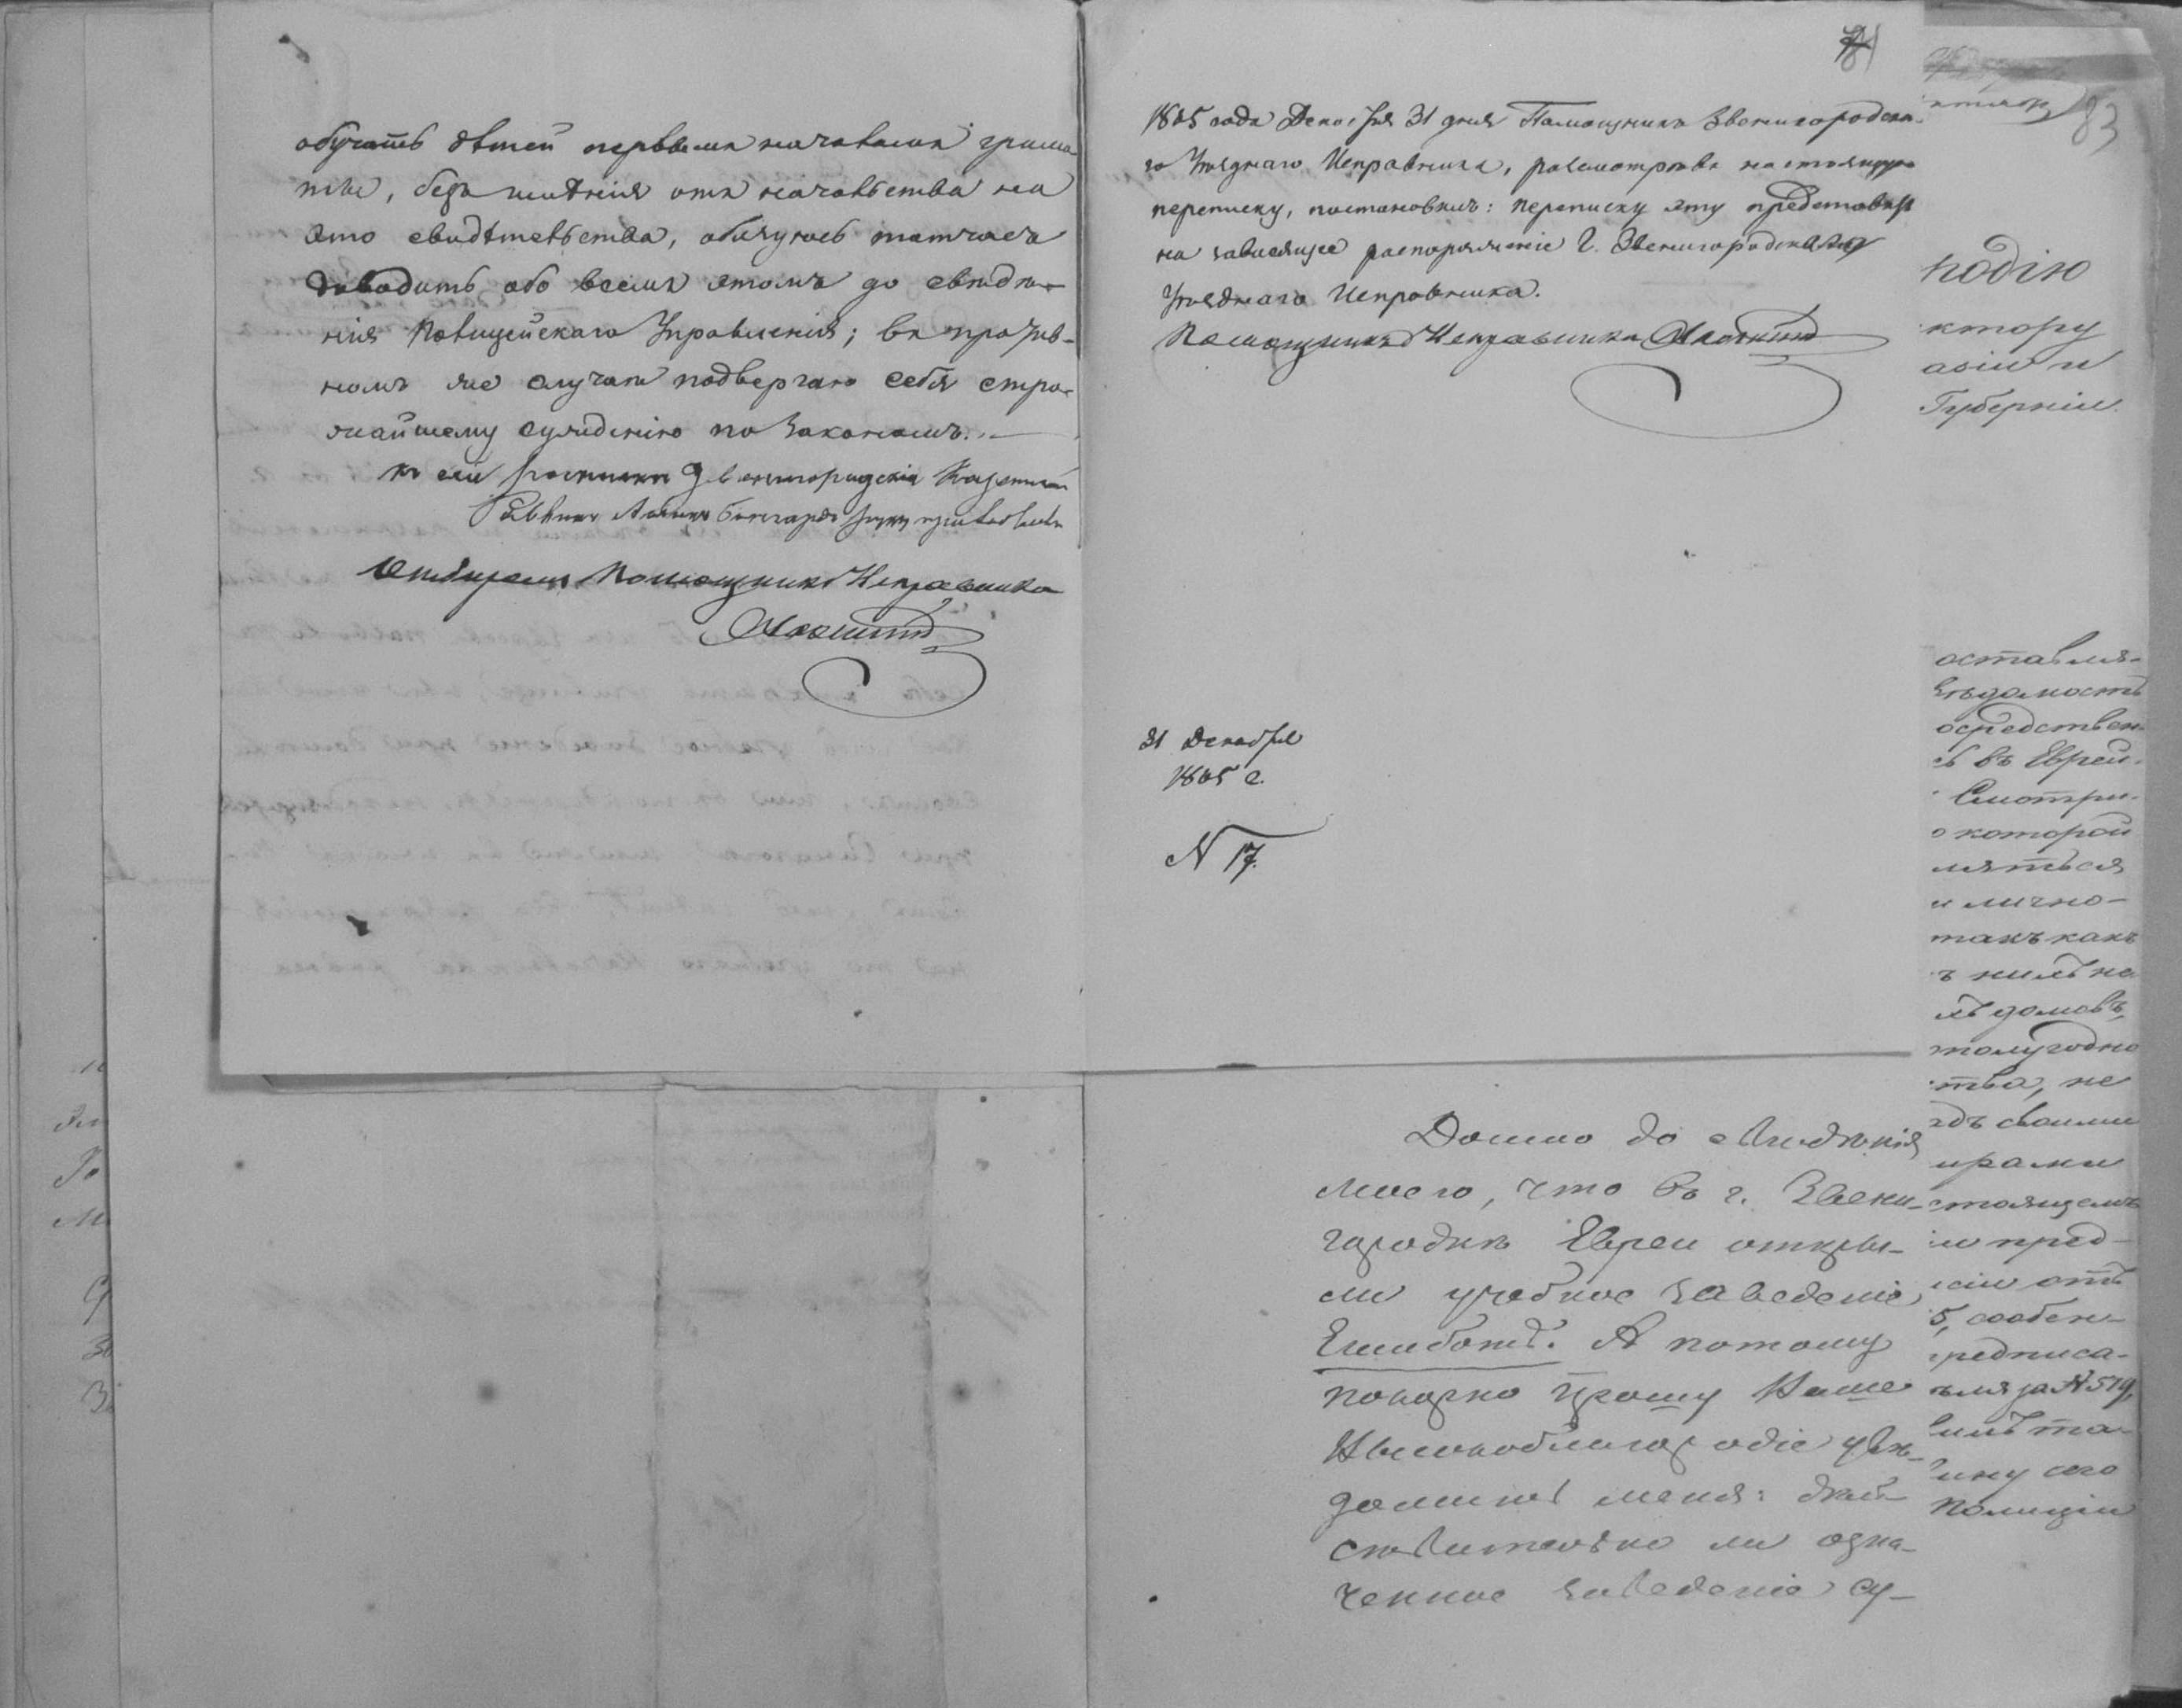 обучатъ дѣтей первымъ началамъ грамо-
тѣ, безъ имѣнія отъ начальства на
это свидѣтельства, обязуюсь тотчасъ
доводить обо всемъ этомъ до свѣдѣ-
нія Полицейскаго Управленія; въ против-
номъ же случаѣ подвергаю себя стро-
жайшему сужденію по законамъ.
къ сей роспискѣ Звенигородскій Казенный
Раввинъ руку приложилъ
Отбиралъ Помощникъ Исправника
81
1865 года Декабря 31 дня Помощникъ Звенигородска-
го Уѣзднаго Исправника, разсмотрѣвъ настоящую
переписку, постановилъ: переписку эту представить
на зависящее распоряженіе Г. Звенигородскаго
Уѣзднаго Исправника.
Помощникъ Исправника
31 Декабря
1865 г.
N 17.
Дошло до свѣдѣнія
моего, что въ г. Звени-
городкѣ Евреи откры-
ли учебное заведеніе
Ешиботъ. А потому
покорно прошу Ваше
Высокоблагородіе увѣ-
домить меня: дѣй-
ствительно ли озна-
ченное заведеніе су-
83
подію
ктору
азіи и
Губерніи
оставля-
вѣдомость
осредствен-
въ Еврей-
Смотри-
о которой
ляться
и лично-
такъ какъ
ъ нимъ на
хъ домовъ,
полугодно
тва, не
адъ своими
ирами
стоящемъ
ію пред-
ніи отъ
5, особен-
предписа-
еля за N 519,
ину сего
Полиціи